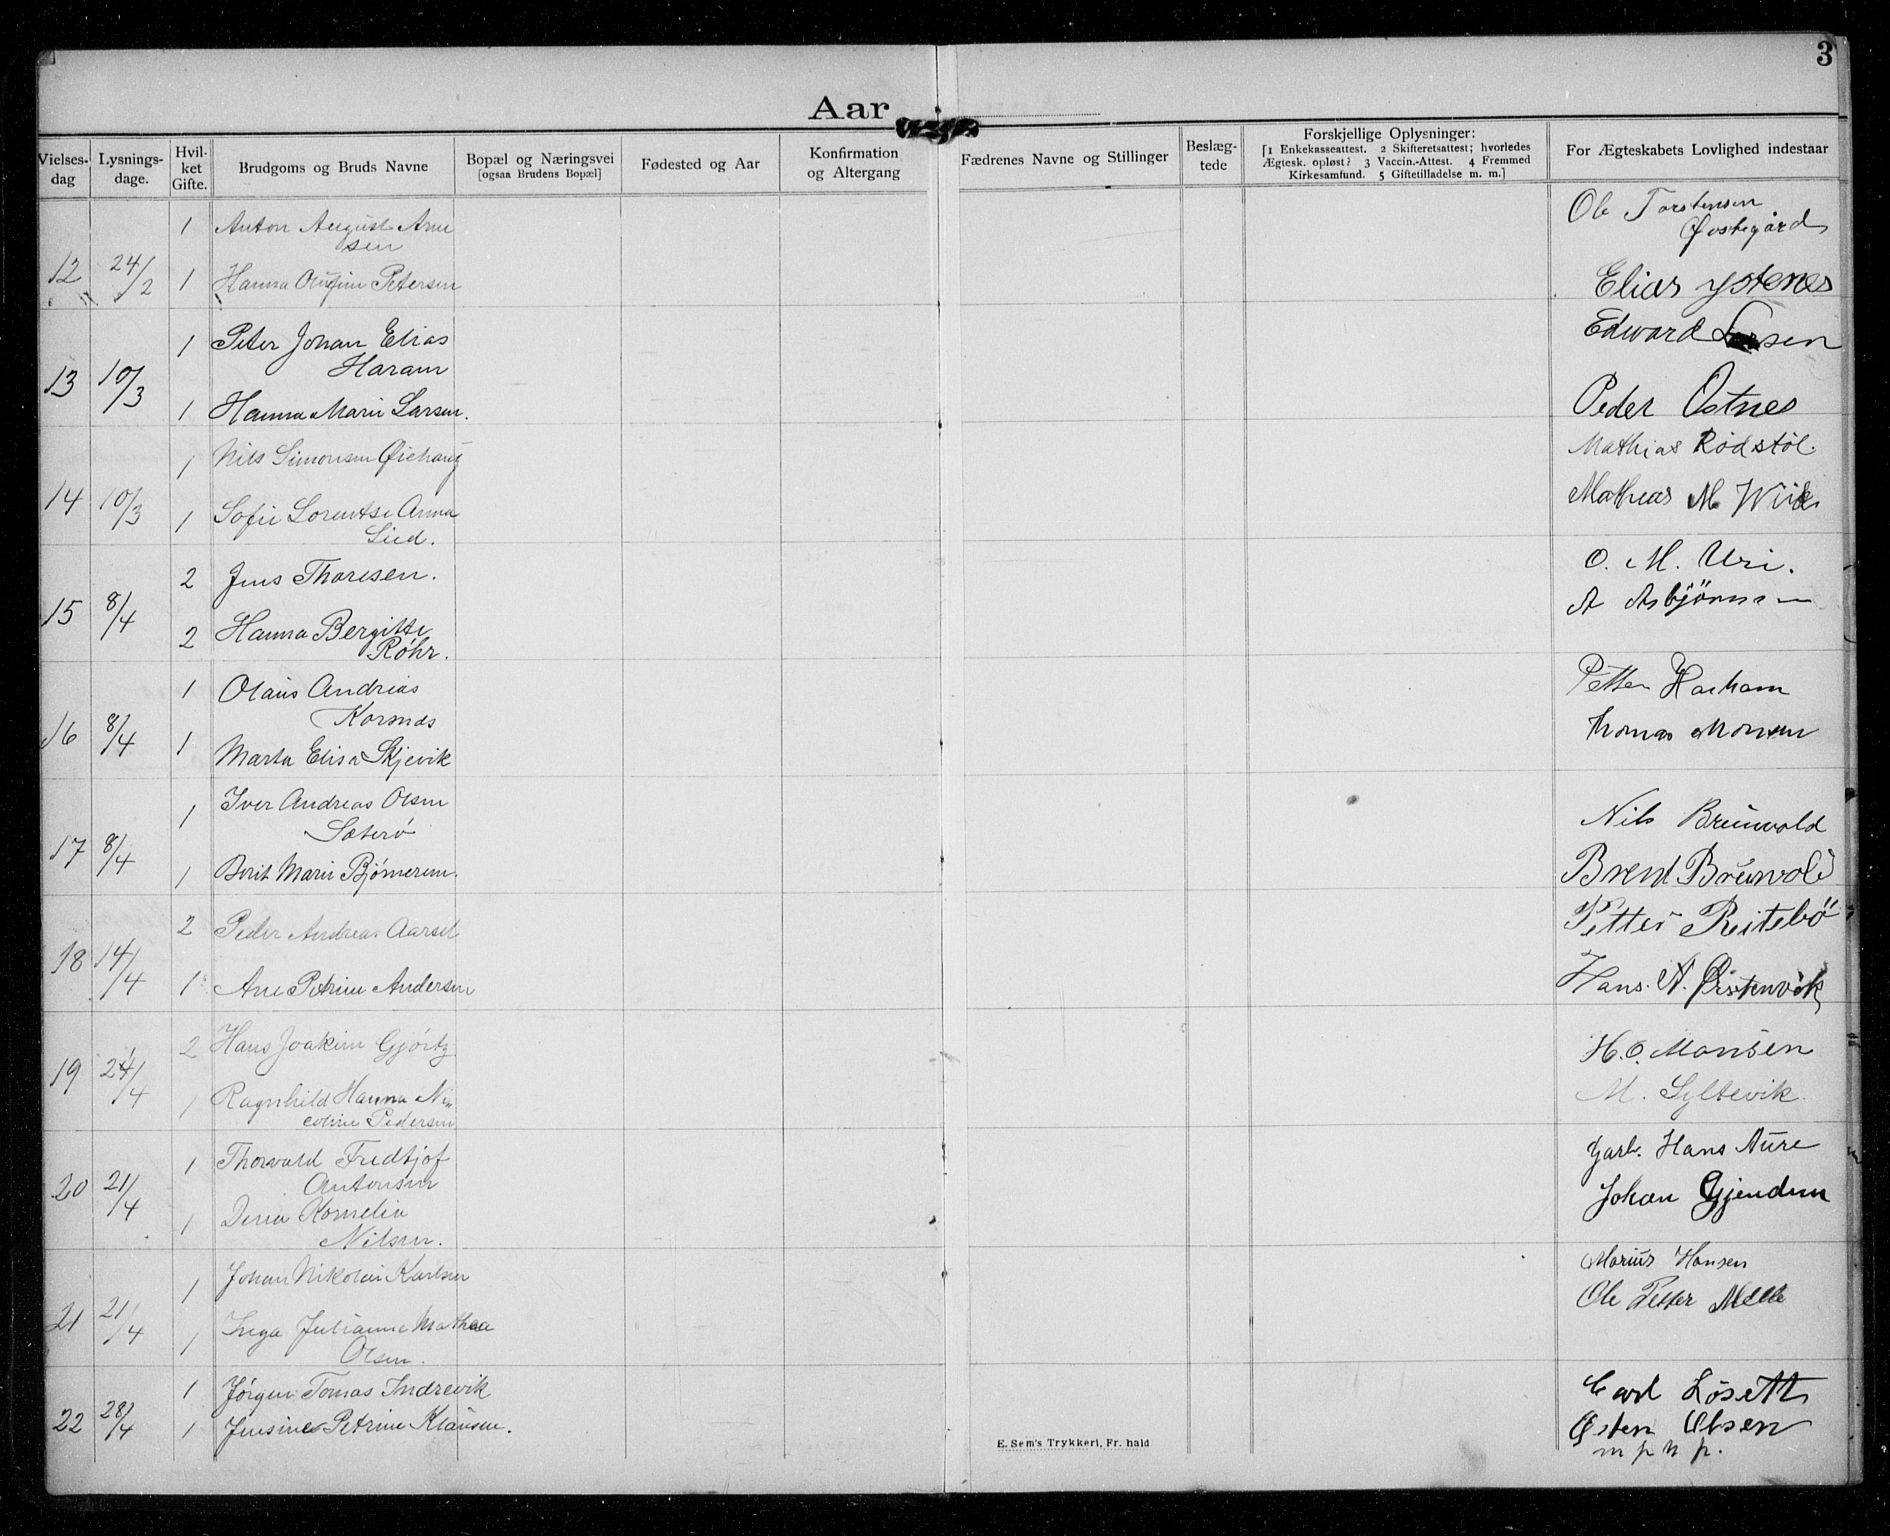 3
Aar
Vielses-dag
Lysnings-dage.
Hvil-ket Gifte.
Brudgoms og Bruds Navne
Bopæl og Næringsvei
[ogsaa Brudens Bopæl]
Fødested og Aar
Konfirmation og Altergang
Fædrenes Navne og Stillinger
Beslæg-tede
Forskjellige Oplysninger:
[1 Enkekasseattest. 2 Skifteretsattest; hvorledes
Ægtesk. opløst? 3 Vaccin.-Attest. 4 Fremmed
Kirkesamfund. 5 Giftetilladelse m. m.]
For Ægteskabets Lovlighed indestaar
1 Anton August Arne
sen
12 24/2 1 Hanna Olufine Petersen
Ole Torstensen
Østegård
Elias Ystenes
1 Peter Johan Elias
Haram
13 10/3 1 Hanna Marie Larsen.
Edward Larsen
Peder Ostnes
1 Nils Simonsen Øiehaug
14 10/3 1 Sofie Lorentse Anna
Lied.
Mathias Rødstøl.
Mathias M. Wiik
2 Jens Thoresen.
15 8/4 2 Hanna Bergitte
Røhr.
O. M. Uri.
A Asbjörnsen
1 Olaus Andreas
Kornæs
16 8/4 1 Marta Elisa Skjevik
Petter Harham
Thomas Monsen
1 Iver Andreas Olsen
Sæterø
17 8/4 1 Berit Marie Bjørnerem.
Nils Brunvold
Brend Brunvold
2 Peder Andreas Aarset
18 14/4 1 Ane Petrine Andersen
Petter Reitebö
Hans. A. Ørstenvik
2 Hans Joakim Gjørtz
19 21/4 1 Ragnhild Hanna Ni
coline Pedersen
H. O. Monsen
M. Syltevik.
1 Thorvald Fredtjof
Antonsen
20 21/4 1 Dina Kornelia
Nilsen.
Garb. Hans Aure
Johan Gjendem
1 Johan Nikolai Karlsen
21 21/4 1 Inga Julianne Mathea
Olsen.
Marius Hansen
Ole Petter Melle
1 Jørgen Tomas Indrevik
22 28/4 1 Jensine Petrine Klausen.
Carl Løsett
Østen Olsen
m p n p.
E. Sem's Trykkeri, Fr. hald